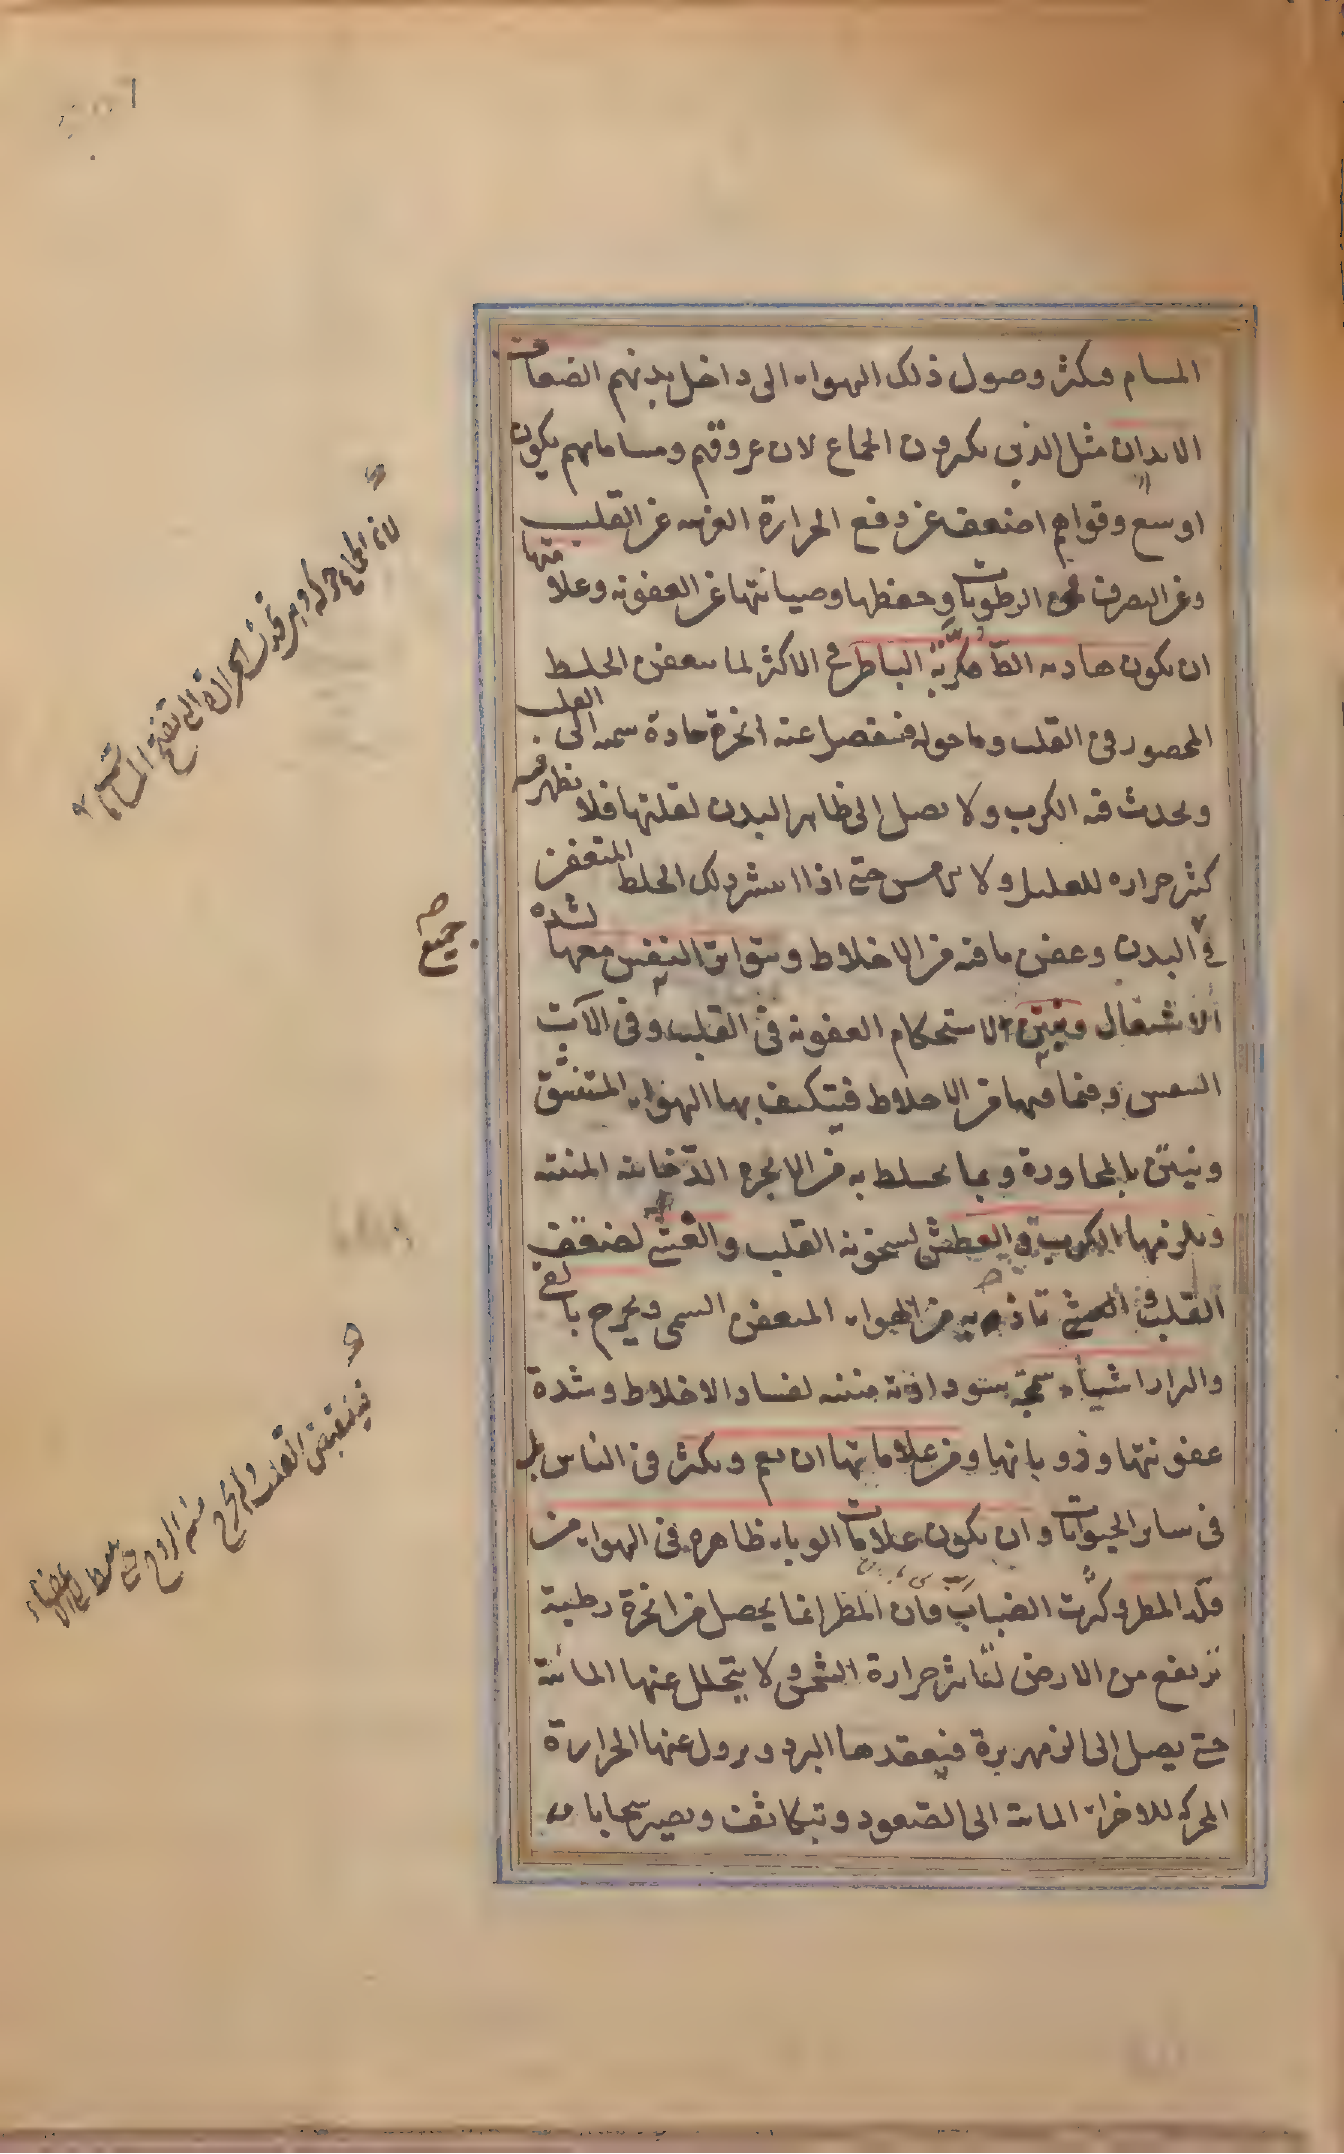 المسام فيكثر وصول ذلك الهواء الى داخل بدنهم الضعاف
الابدان مثل الذين يكثرون الجماع لان عروقهم ومساماتهم يكون
اوسع وقواهم اضعف عن دفع الحرارة الغريبه عن القلب
وعن التصرف في الرطوبات وحفظها وصيانتها عن العفونه وعلامتها
ان يكون هاديه الظاهر كربة الباطن في الاكثر لما يتعفن الخلط
المحصور في القلب وما حوله فينفصل عنه ابخرة حادة سميه الى القلب
ويحدث فيه الكرب ولا يصل الى ظاهر البدن لقلتها فلا يظهر فيه
كثير حراره للعليل ولا لامس حتى اذا انتشر ذلك الخلط المتعفن
في البدن وعفن ما فيه من الاخلاط ويتواتر النفس معها لشدة
الاشتعال وينتن لاستحكام العفونه في القلب وفي الآت
التنفس وفيما فيها من الاخلاط فيتكيف بها الهواء المتنشق
وينتن بالمجاورة وبما يختلط به من الابخرة الدخانيه المنتنه
ويلزمها الكرب والعطش لسخونه القلب والغشى لضعف
القلب و تاذيه من الهواء المتعفن السمى ويخرج بالقي
والبراز اشياء سمجة سوداوية منتنه لفساد الاخلاط وشدة
عفونتها وذوبانها ومن علاماتها ان يعم ويكثر في الناس بل
في ساير الحيوانات وان يكون علامات الوباء ظاهره في الهواء من
قلة المطر وكثرت الضباب فان المطر انما يحصل من ابخرة رطبة
ترتفع من الارض لتاثير حرارة الشمس ولا يتحلل عنها المائية
حتى يصل الى الزمهريرة فيعقدها البرد ويزول عنها الحرارة
المحركه للاجزاء المائية الى الصعود وتتكاثف ويصير سحابا
لان الجماع حركه وهى تحدث الحرارة التى تفتح المسامات
جميع
فينقبض القلب ولا يخرج منه الروح حتى يعطى الاعضاء